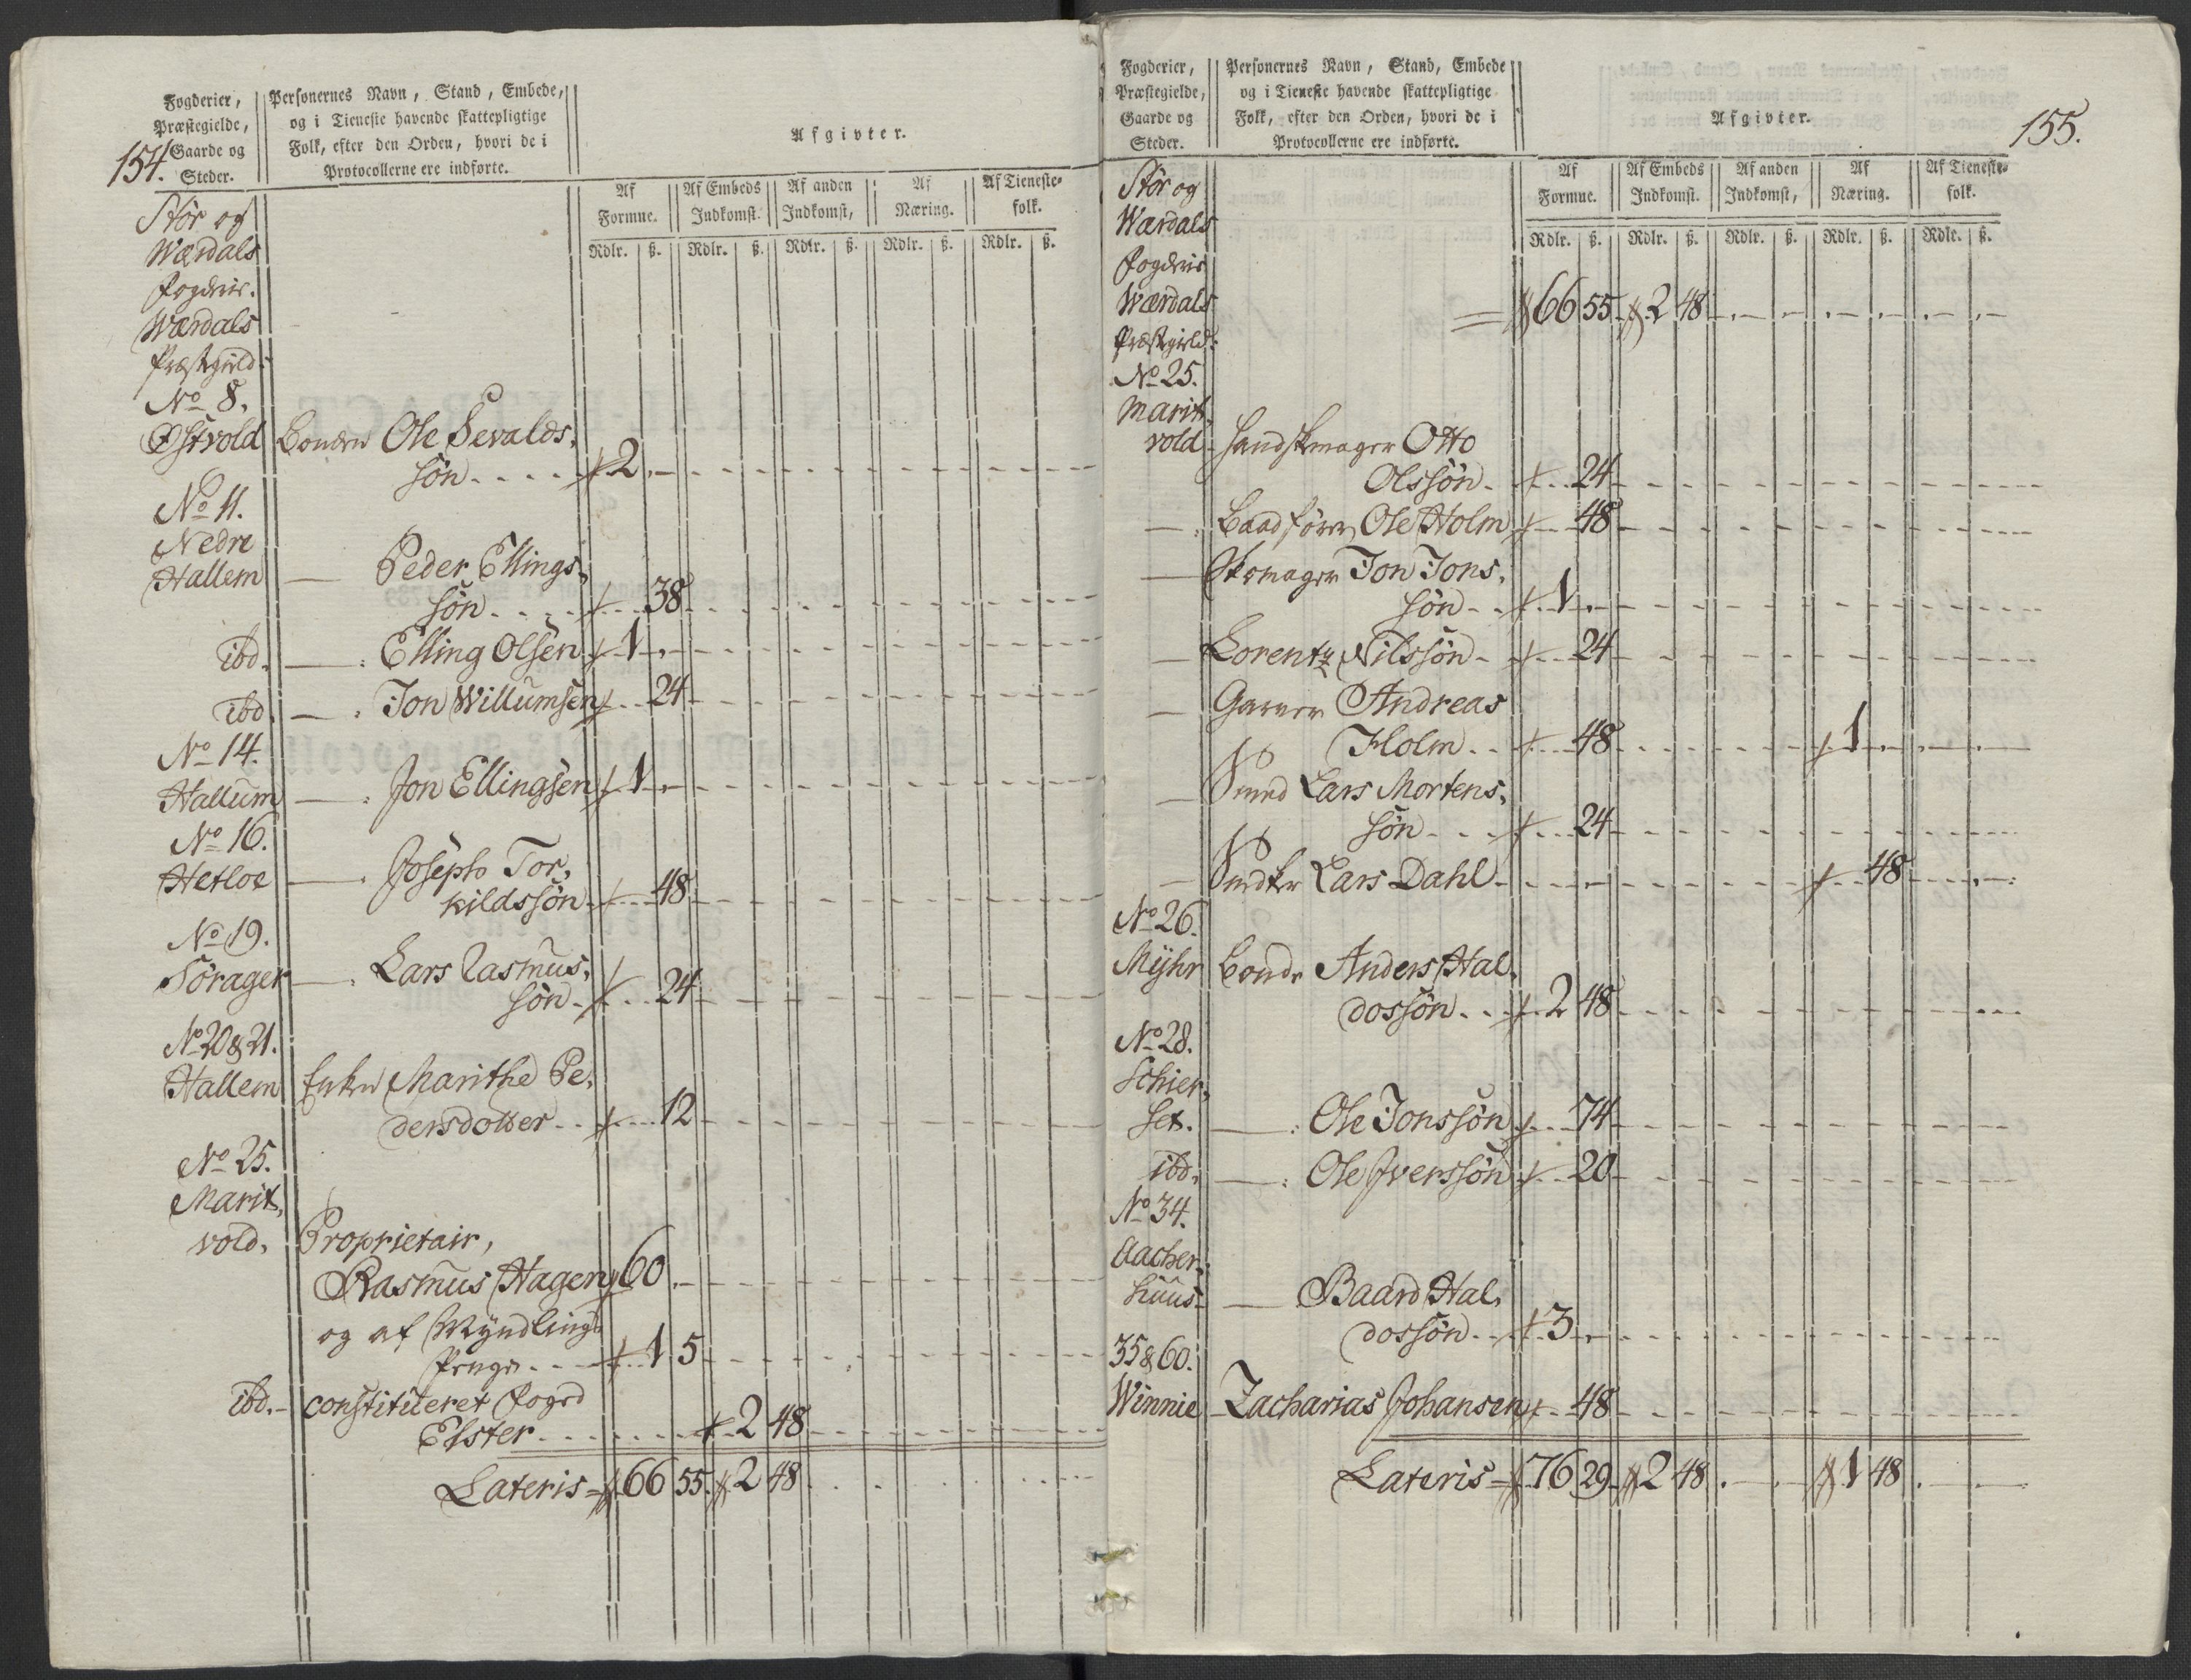 154.
Fogderier,
Præstegielde,
Gaarde og
Steder.
Personernes Navn, Stand, Embede,
og i Tieneste havende skattepligtige
Folk, efter den Orden, hvori de i
Protocollerne ere indførte.
Afgivter.
Af Formue. Af Embeds Indkomst. Af anden Indkomst, Af Næring. Af Tieneste-folk.
Rdlr. ß. Rdlr. ß. Rdlr. ß. Rdlr. ß. Rdlr. ß.
Stör og
Wærdals
Fogderie.
Wærdals
Præstegield:
No 8.
Østvold Bonden Ole Sevalds,
sön . . . . 2 . -
No 11.
Nedre
Hallem — Peder Ellings,
sön . . . . 38
ibd. — : Elling Olsen 1 . -
ibd. — : Jon Willumsen 24
No 14.
Hallum — : Jon Ellingsen 1 . -
No 16.
Hetloe — : Joseph Tor,
kildssön 48
No 19.
Sörager — : Lars Rasmus,
sön 24
No 20 & 21.
Hallem Enken Marithe Pe,
dersdotter . . 12
No 25.
Marit,
vold. Proprietair,
Rasmus Hagen 60 . -
og af Myndlings
Penge . . . 1 5
ibd. - constitueret Foged
Elster . . . . 2 48
Lateris = 66 55. 2 48
155.
Fogderier,
Præstegielde,
Gaarde og
Steder.
Personernes Navn, Stand, Embede
og i Tieneste havende skattepligtige
Folk, efter den Orden, hvori de i
Protocollerne ere indførte.
Afgivter.
Af Formue. Af Embeds Indkomst. Af anden Indkomst, Af Næring. Af Tieneste-folk.
Rdlr. ß. Rdlr. ß. Rdlr. ß. Rdlr. ß. Rdlr. ß.
Stör og
Wærdals
Fogderie
Wærdals = 66 55 2 48
Præstegield:
No 25.
Marit,
vold - Handskemager Otto
Olssön - 24
— : Baadförer Ole Holm 48
— Skomager Jon Jons,
sön . . 1 . -
— Lorentz Nilssön - 24
— Garver Andreas
Holm . . 48 1 . -
— Smed Lars Mortens,
sön . . . 24
— Snedker Lars Dahl 48
No 26.
Mÿhr Bonde Anders Hal,
dossön . . 2 48
No 28.
Schier,
set. — : Ole Jonssön 74
ibd. — : Ole Iverssön 20
No 34.
Aacher,
huus - — Baard Hal,
dossön . . 3 . -
35 & 60.
Winnie - Zacharias Johansen 48
Lateris = 76 29 2 48 . - . 1 48 . -